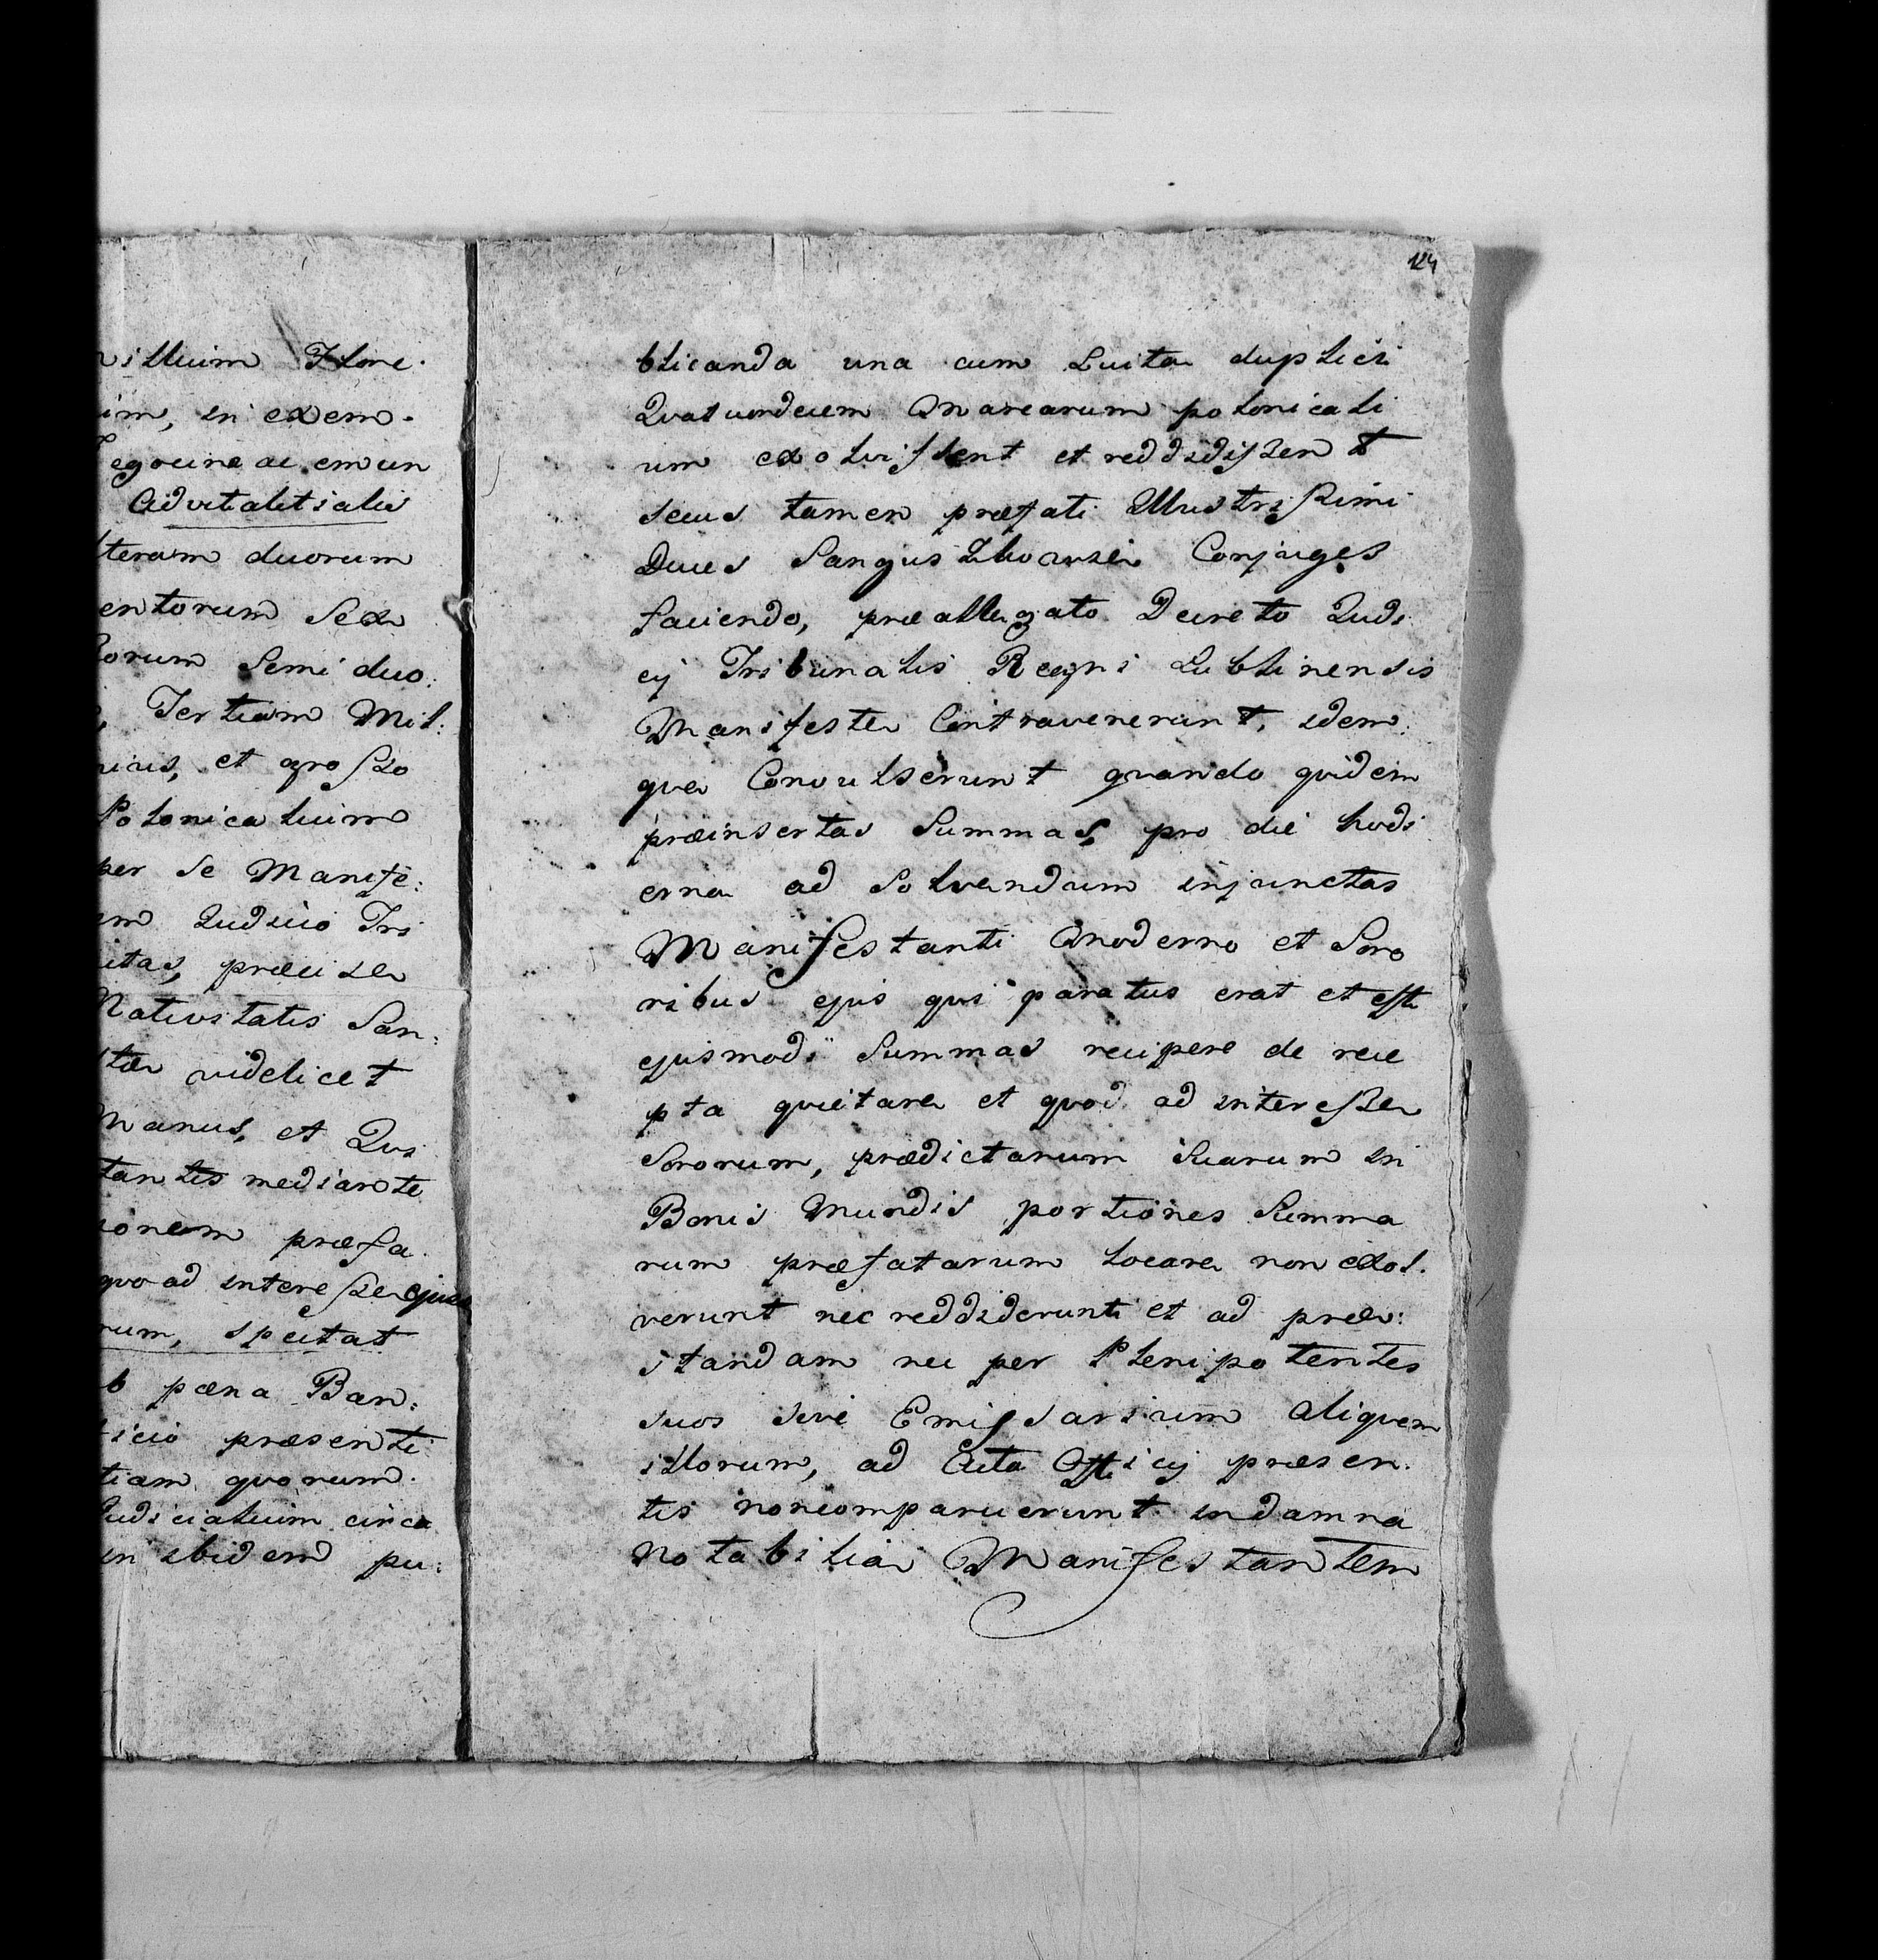 illium Flore.
im, in exem.
egrine ac emun
Advitalitialis
teram duorum
entorum Sex
orum Semi duo:
Tertiam Mil:
nius, et grosso
Polonicalium
per se Manife:
em Judicio Tri
itas, præcise
Nativitatis San:
tæ videlicet
Manus, et Qui
tantis mediante
ionem præfa.
quoad interesse ejus
rum, spectat
b pæna Ban:
icio præsenti
tiam quorum.
Judicialium circa
in ibidem pu:
124
blicanda una cum Luita duplici
Quatuordecem Marcarum polonicali
um exolvissent et reddidissent
secus tamen præfati Illustrissimi
Duces Sanguszkowscy Conjuges
faciendo, præallegato Decreto Judi
cij Tribunalis Regni Lublinensis
Manifeste Contravenerunt, idem:
que Convulserunt quando quidem
præinsertas Summas, pro die hodi
erna ad Solvendum injunctas
Manifestanti Moderno et Soro
ribus ejus qui paratus erat et est
ejusmodi Summas recipere de rece
pta quietare et quod ad interesse
Sororum, prædictarum Suarum in
Bonis Mundis portiones Summa
rum præfatarum locare non exol.
verunt nec reddiderunt et ad præ:
standam nec per Plenipotentes
suos sive Emissarium aliquem
illorum, ad Acta Officij præsen.
tis noncomparuerunt indamna
Notabilia Manifestantem